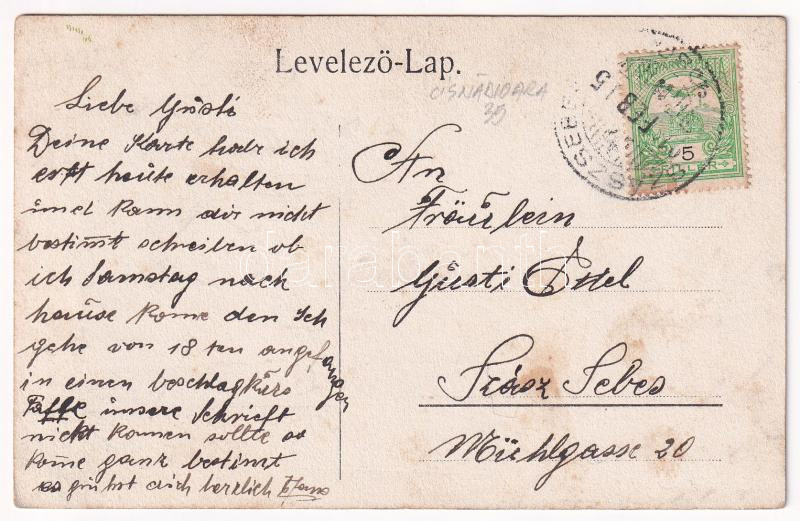 Levelező-Lap.
CISNĂDIOARA
39
Liebe Gusti
Deine Karte habe ich
erst heute erhalten
und kann dir nicht
bestimt schreiben ob
ich Samstag nach
hause kome den Ich
gehe von 18 ten angefangen
in einen beschlagkurs
unsere Schrieft
nickt komen sollte so
kome ganz bestimt
es grühst dich herzlich
An
Fräulein
Gusti Ettel
Szász Sebes
Mühlgasse 20
5
FEB 15
darabanth